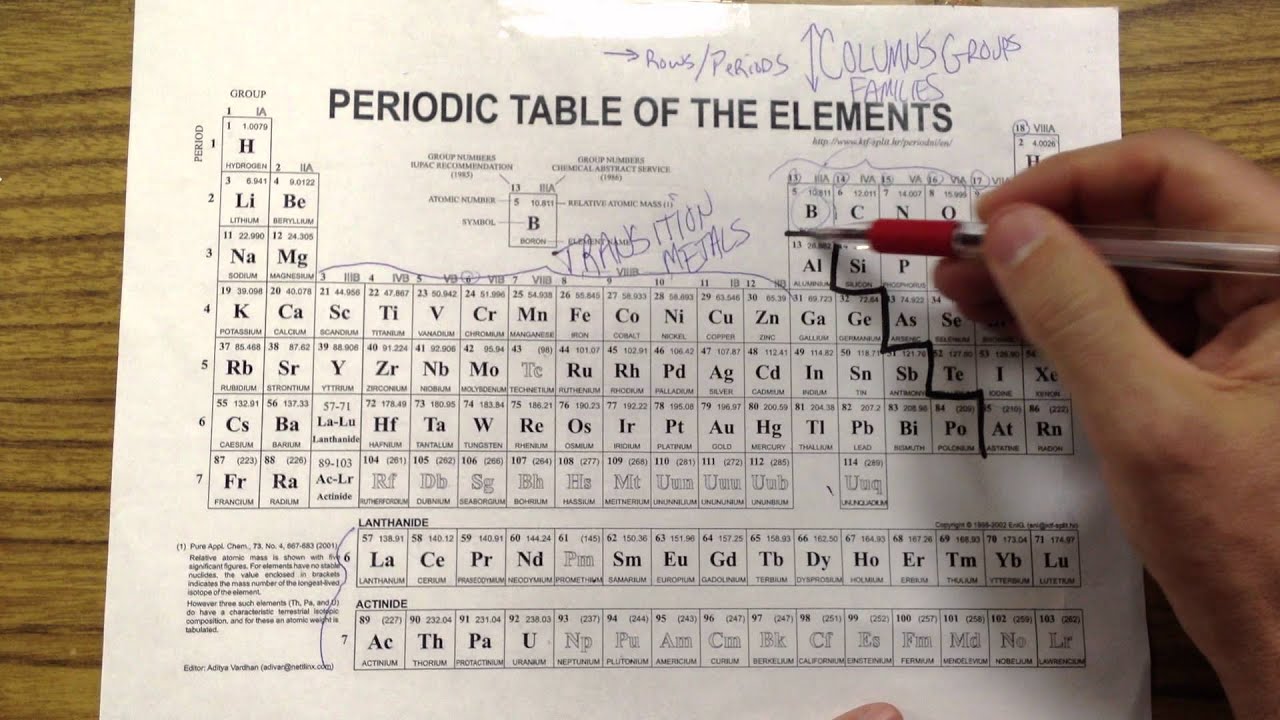 → ROWS/PERIODS ↕ COLUMNS GROUPS
FAMILIES
PERIODIC TABLE OF THE ELEMENTS
http://www.ktf-split.hr/periodni/en/
GROUP
PERIOD
1 IA 18 VIIIA
1 1 1.0079 2 4.0026
H
HYDROGEN
2 IIA 13 IIIA 14 IVA 15 VA 16 VIA 17
GROUP NUMBERS IUPAC RECOMMENDATION (1985)
GROUP NUMBERS CHEMICAL ABSTRACT SERVICE (1986)
13 IIIA
ATOMIC NUMBER 5 10.811 RELATIVE ATOMIC MASS (1)
SYMBOL B
BORON ELEMENT NAME
TRANSITION
METALS
2 3 6.941 4 9.0122 5 10.811 6 12.011 7 14.007 8 15.999
Li Be B C N O
LITHIUM BERYLLIUM
3 11 22.990 12 24.305 13
Na Mg Al Si P
SODIUM MAGNESIUM ALUMINIUM SILICON PHOSPHORUS
3 IIIB 4 IVB 5 VB 6 VIB 7 VIIB 8 9 VIIIB 10 11 IB 12 IIB
4 19 39.098 20 40.078 21 44.956 22 47.867 23 50.942 24 51.996 25 54.938 26 55.845 27 58.933 28 58.693 29 63.546 30 65.39 31 69.723 32 72.64 33 74.922 34
K Ca Sc Ti V Cr Mn Fe Co Ni Cu Zn Ga Ge As Se
POTASSIUM CALCIUM SCANDIUM TITANIUM VANADIUM CHROMIUM MANGANESE IRON COBALT NICKEL COPPER ZINC GALLIUM GERMANIUM ARSENIC SELENIUM
5 37 85.468 38 87.62 39 88.906 40 91.224 41 92.906 42 95.94 43 (98) 44 101.07 45 102.91 46 106.42 47 107.87 48 112.41 49 114.82 50 118.71 51 121.76 52 127.60 53 126.90 54
Rb Sr Y Zr Nb Mo Tc Ru Rh Pd Ag Cd In Sn Sb Te I Xe
RUBIDIUM STRONTIUM YTTRIUM ZIRCONIUM NIOBIUM MOLYBDENUM TECHNETIUM RUTHENIUM RHODIUM PALLADIUM SILVER CADMIUM INDIUM TIN ANTIMONY IODINE XENON
6 55 132.91 56 137.33 57-71 72 178.49 73 180.95 74 183.84 75 186.21 76 190.23 77 192.22 78 195.08 79 196.97 80 200.59 81 204.38 82 207.2 83 208.98 84 (209) 85 (210) 86 (222)
Cs Ba La-Lu Hf Ta W Re Os Ir Pt Au Hg Tl Pb Bi Po At Rn
CAESIUM BARIUM Lanthanide HAFNIUM TANTALUM TUNGSTEN RHENIUM OSMIUM IRIDIUM PLATINUM GOLD MERCURY THALLIUM LEAD BISMUTH POLONIUM ASTATINE RADON
7 87 (223) 88 (226) 89-103 104 (261) 105 (262) 106 (266) 107 (264) 108 (277) 109 (268) 110 (281) 111 (272) 112 (285) 114 (289)
Fr Ra Ac-Lr Rf Db Sg Bh Hs Mt Uun Uuu Uub Uuq
FRANCIUM RADIUM Actinide RUTHERFORDIUM DUBNIUM SEABORGIUM BOHRIUM HASSIUM MEITNERIUM UNUNNILIUM UNUNUNIUM UNUNBIUM UNUNQUADIUM
LANTHANIDE
Copyright © 1998-2002 EniG. (eni@ktf-split.hr)
6 57 138.91 58 140.12 59 140.91 60 144.24 61 (145) 62 150.36 63 151.96 64 157.25 65 158.93 66 162.50 67 164.93 68 167.26 69 168.93 70 173.04 71 174.97
La Ce Pr Nd Pm Sm Eu Gd Tb Dy Ho Er Tm Yb Lu
LANTHANUM CERIUM PRASEODYMIUM NEODYMIUM PROMETHIUM SAMARIUM EUROPIUM GADOLINIUM TERBIUM DYSPROSIUM HOLMIUM ERBIUM THULIUM YTTERBIUM LUTETIUM
ACTINIDE
7 89 (227) 90 232.04 91 231.04 92 238.03 93 (237) 94 (244) 95 (243) 96 (247) 97 (247) 98 (251) 99 (252) 100 (257) 101 (258) 102 (259) 103 (262)
Ac Th Pa U Np Pu Am Cm Bk Cf Es Fm Md No Lr
ACTINIUM THORIUM PROTACTINIUM URANIUM NEPTUNIUM PLUTONIUM AMERICIUM CURIUM BERKELIUM CALIFORNIUM EINSTEINIUM FERMIUM MENDELEVIUM NOBELIUM LAWRENCIUM
(1) Pure Appl. Chem., 73, No. 4, 667-683 (2001)
Relative atomic mass is shown with five
significant figures. For elements have no stable
nuclides, the value enclosed in brackets
indicates the mass number of the longest-lived
isotope of the element.
However three such elements (Th, Pa, and U)
do have a characteristic terrestrial isotopic
composition, and for these an atomic weight is
tabulated.
Editor: Aditya Vardhan (adivar@nettlinx.com)